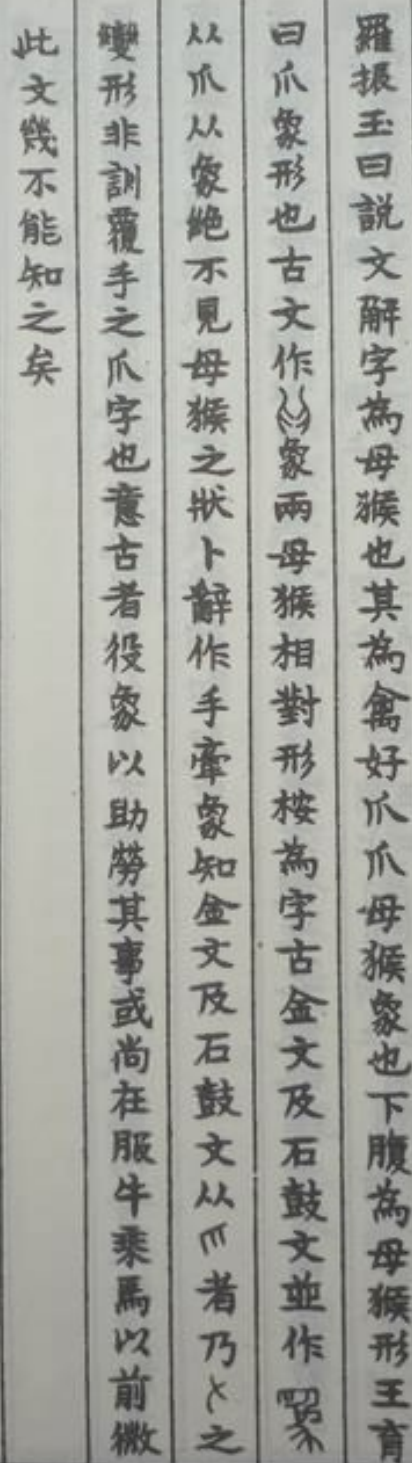 羅振玉曰説文解字為母猴也其為禽好爪爪母猴象也下腹為母猴形王育
曰爪象形也古文作象兩母猴相對形桉為字古金文及石鼓文並作
从爪从象絶不見母猴之狀卜辭作手牽象知金文及石鼓文从爫者乃之
變形非訓覆手之爪字也意古者役象以助勞其事或尚在服牛乘馬以前微
此文幾不能知之矣